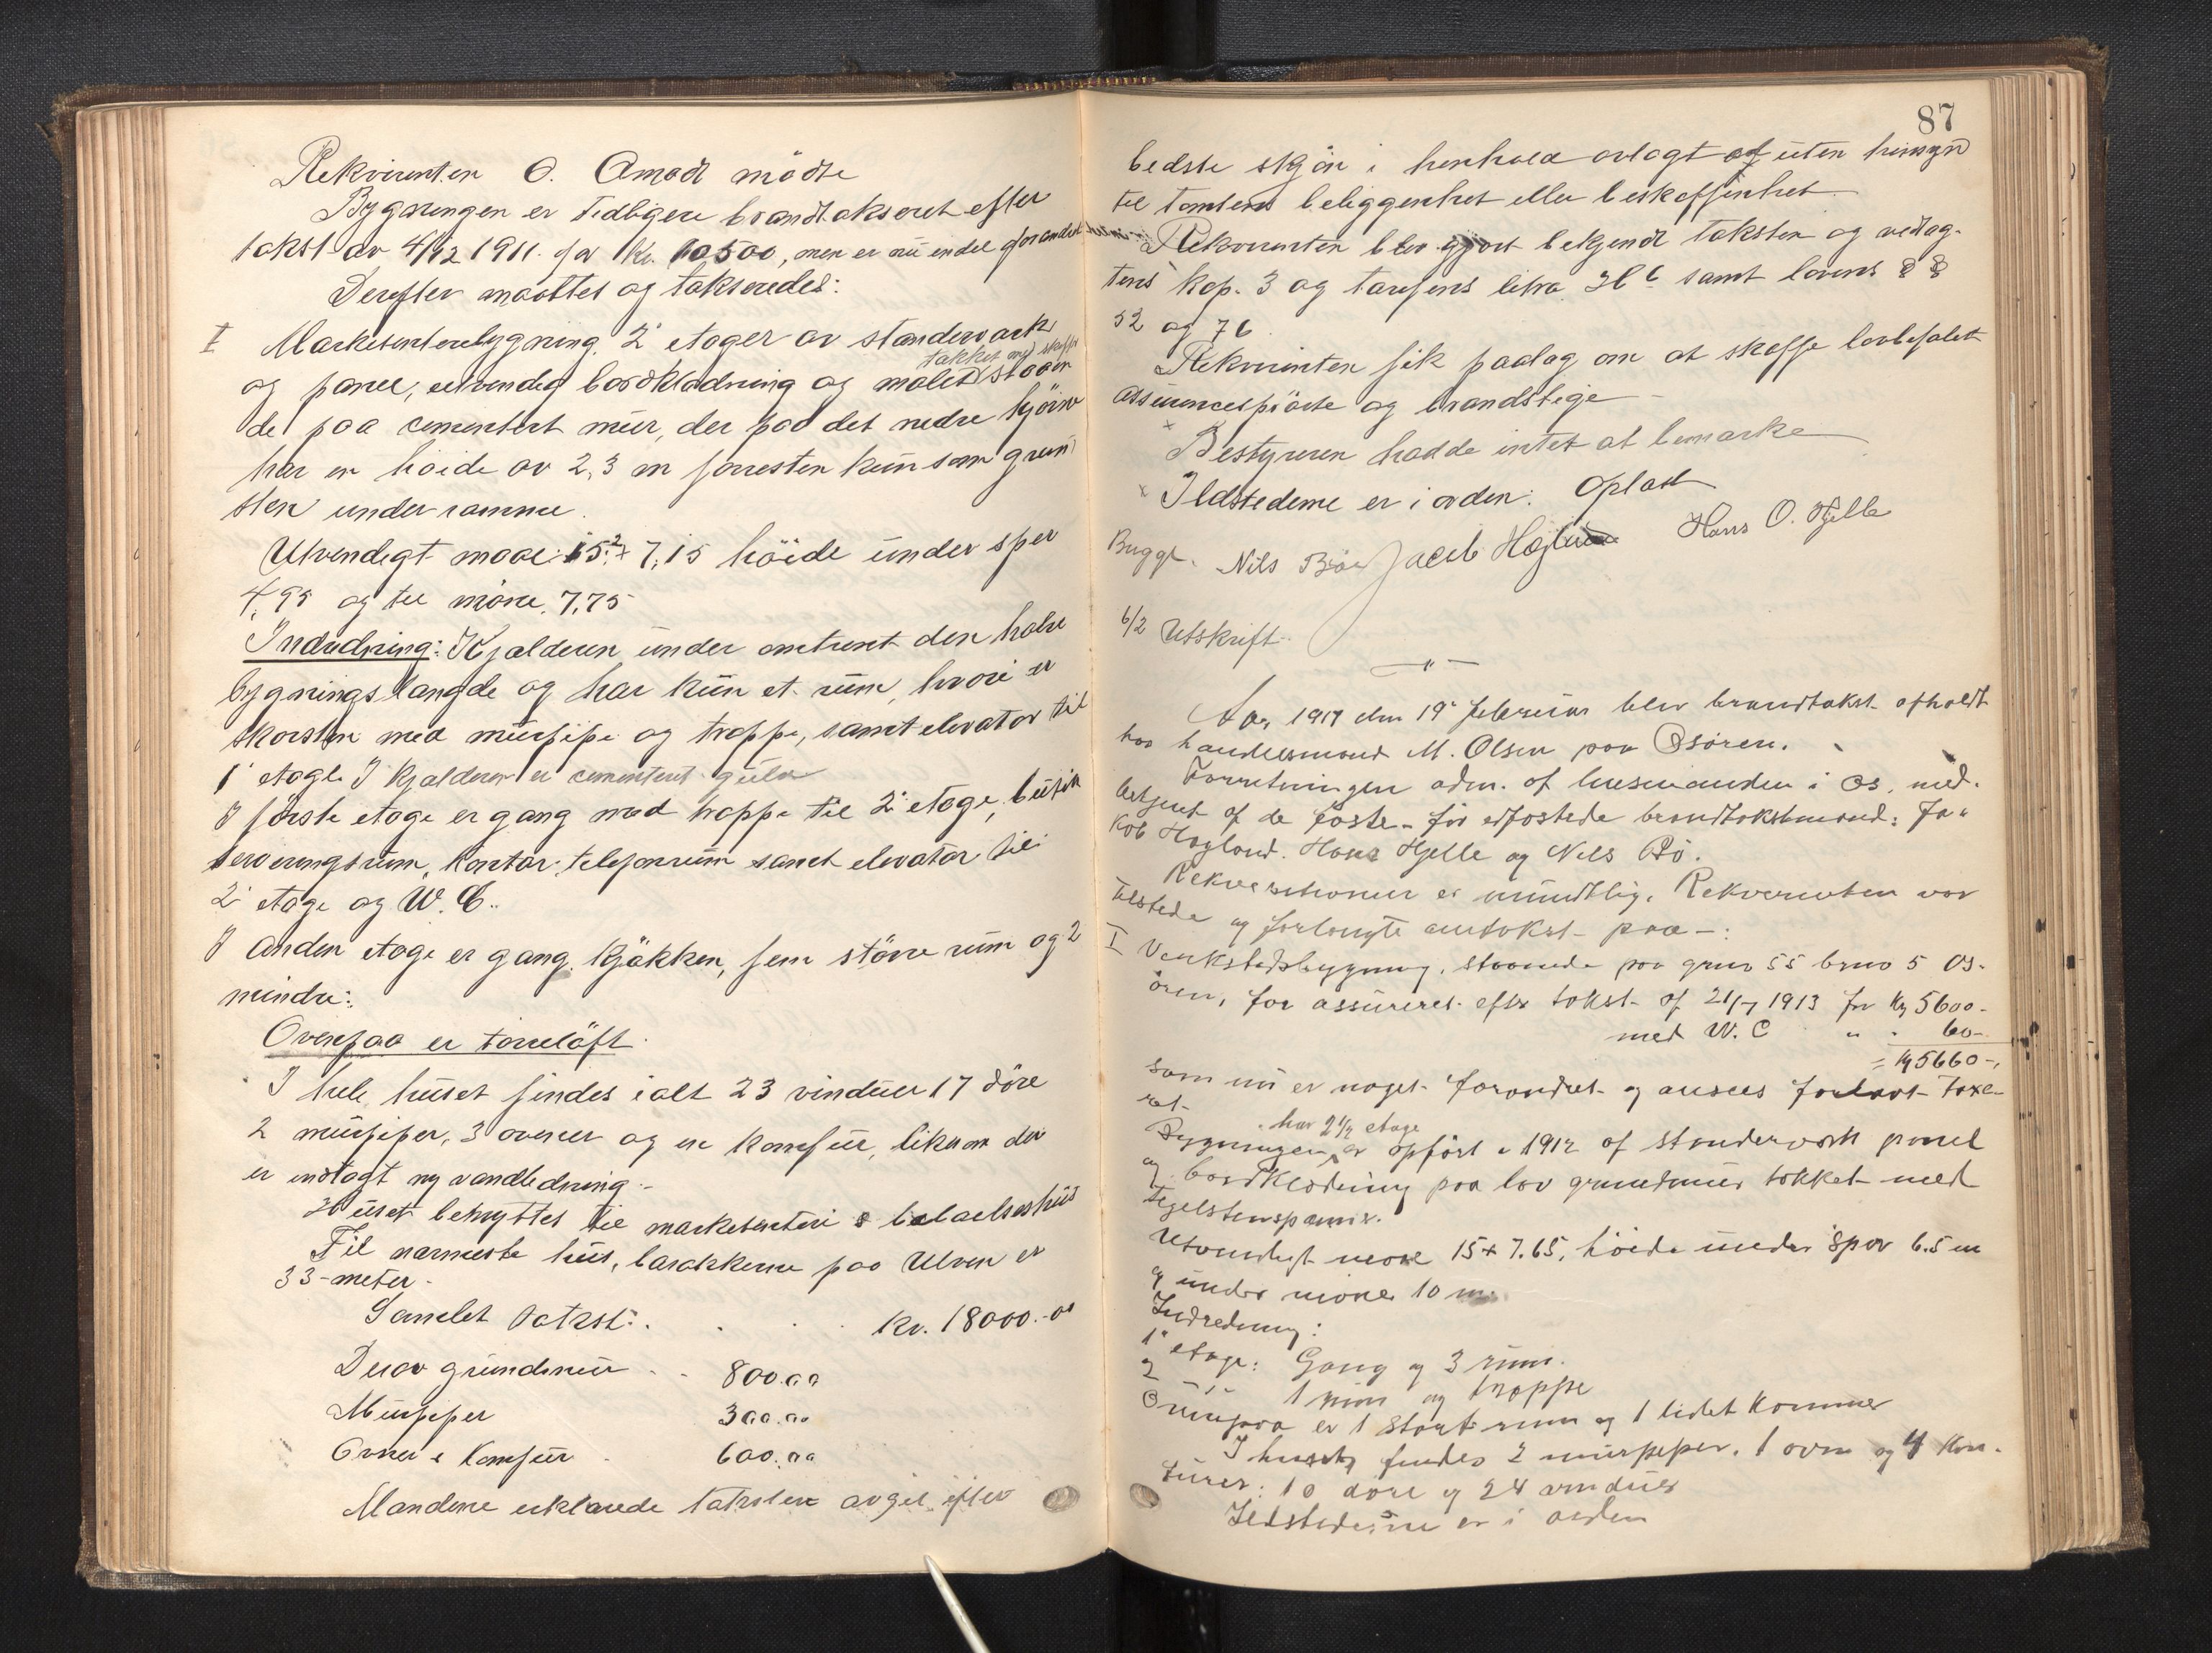 Rekvirenten O. Amodt mödte
Bygningen er tidligere brandtakseret efter
takst av 4/12 1911 for Kr. 10500, men er nu endel forandret
Derefter maaltes og takseredes:
I Marketenteribygning 2 etager av standerverk
takket med skiffer
og panel, utvendig bordklædning og malet staaen
de paa cementert mur, der paa det nedre hjörne
har en höide av 2,3 m forresten kun som grun
sten under ramme.
Utvendigt maal: 15,2 + 7,15 höide under sper
4,95 og til möne 7,75
Indredning: Kjælderen under omtrent den halve
bygningslængde og har kun et rum, hvori er
skorsten med murpipe og trappe, samt elevator til
1' etage. I kjælderen er cementert gulv
I förste etage er gang med trappe til 2' etage, butik
serveringsrum, kontor, telefonrum samt elevator til
2' etage og W. C..
I anden etage er gang, kjökken, fem större rum og 2
mindre:
Ovenpaa er törreloft.
I hele huset findes ialt 23 vinduer 17 döre
2 murpiper, 3 ovner og en komfur, likesom der
er indlagt ny vandledning.-
Huset benyttes til marketenteri & beboelseshus
Til nærmeste hus, barakkerne paa Ulven er
33-meter.
Samlet takst: . . . Kr. 18000.-00
Derav grundmur . . 800.00
Murpiper 300.00
Ovner & Komfur . 600.00
Mændene erklærede taksten avgit efter
87
bedste skjön i henhold avlagt ed uten hensyn
til tomtens beliggenhet eller beskaffenhet
Rekvirenten blev gjort bekjendt taksten og vedtæg-
tens kap. 3 og tarifens litra H c samt lovens § §
52 og 76.
Rekvirenten fik paalæg om at skaffe lovbefalet
assurancespröite og brandstige
× Bestyreren hadde intet at bemærke
× Ildstederne er i orden. Oplæst
Nils Bö Jacob Hoglund Hans O. Hjelle
6/2 Utskrift.
—"—
Aar 1917 den 19' februar blev brandtakst afholdt
hos handelsmand M. Olsen paa Osören.
Forretningen adm. af lensmanden i Os, med.
betjent af de faste- för edfæstede brandtakstmænd: Ja-
kob Hoglund. Hans Hjelle og Nils Bö.
Rekvisitionen er mundtlig. Rekvirenten var
tilstede og forlangte omtakst paa -:
I Verkstedsbygning, staaende paa grno 55 brno 5 Os-
ören, for assureret efter takst af 21/7 1913 for Kr 5600-
med W. C " . 60-
= Kr 5660-,
som nu er noget forandret og ansees forlavt taxe-
ret-
har 2 1/2 etage
Bygningen er opfört i 1912 af standerverk panel
og bordklædning paa lav grundmur tækket med
teglstenspanner.
Utvendigt maal 15 + 7.65, höide under sper 6.5 m
og under möne 10 m.
Indredning:
1" etage: Gang og 3 rum.
2 " 1 rum og trappe
Ovenpaa er 1 stort rum og 1 lidet kammer
I huset findes 2 murpiper, 1 ovn og 4 kom-
furer: 10 döre og 24 vinduer
Ildstederne er i orden